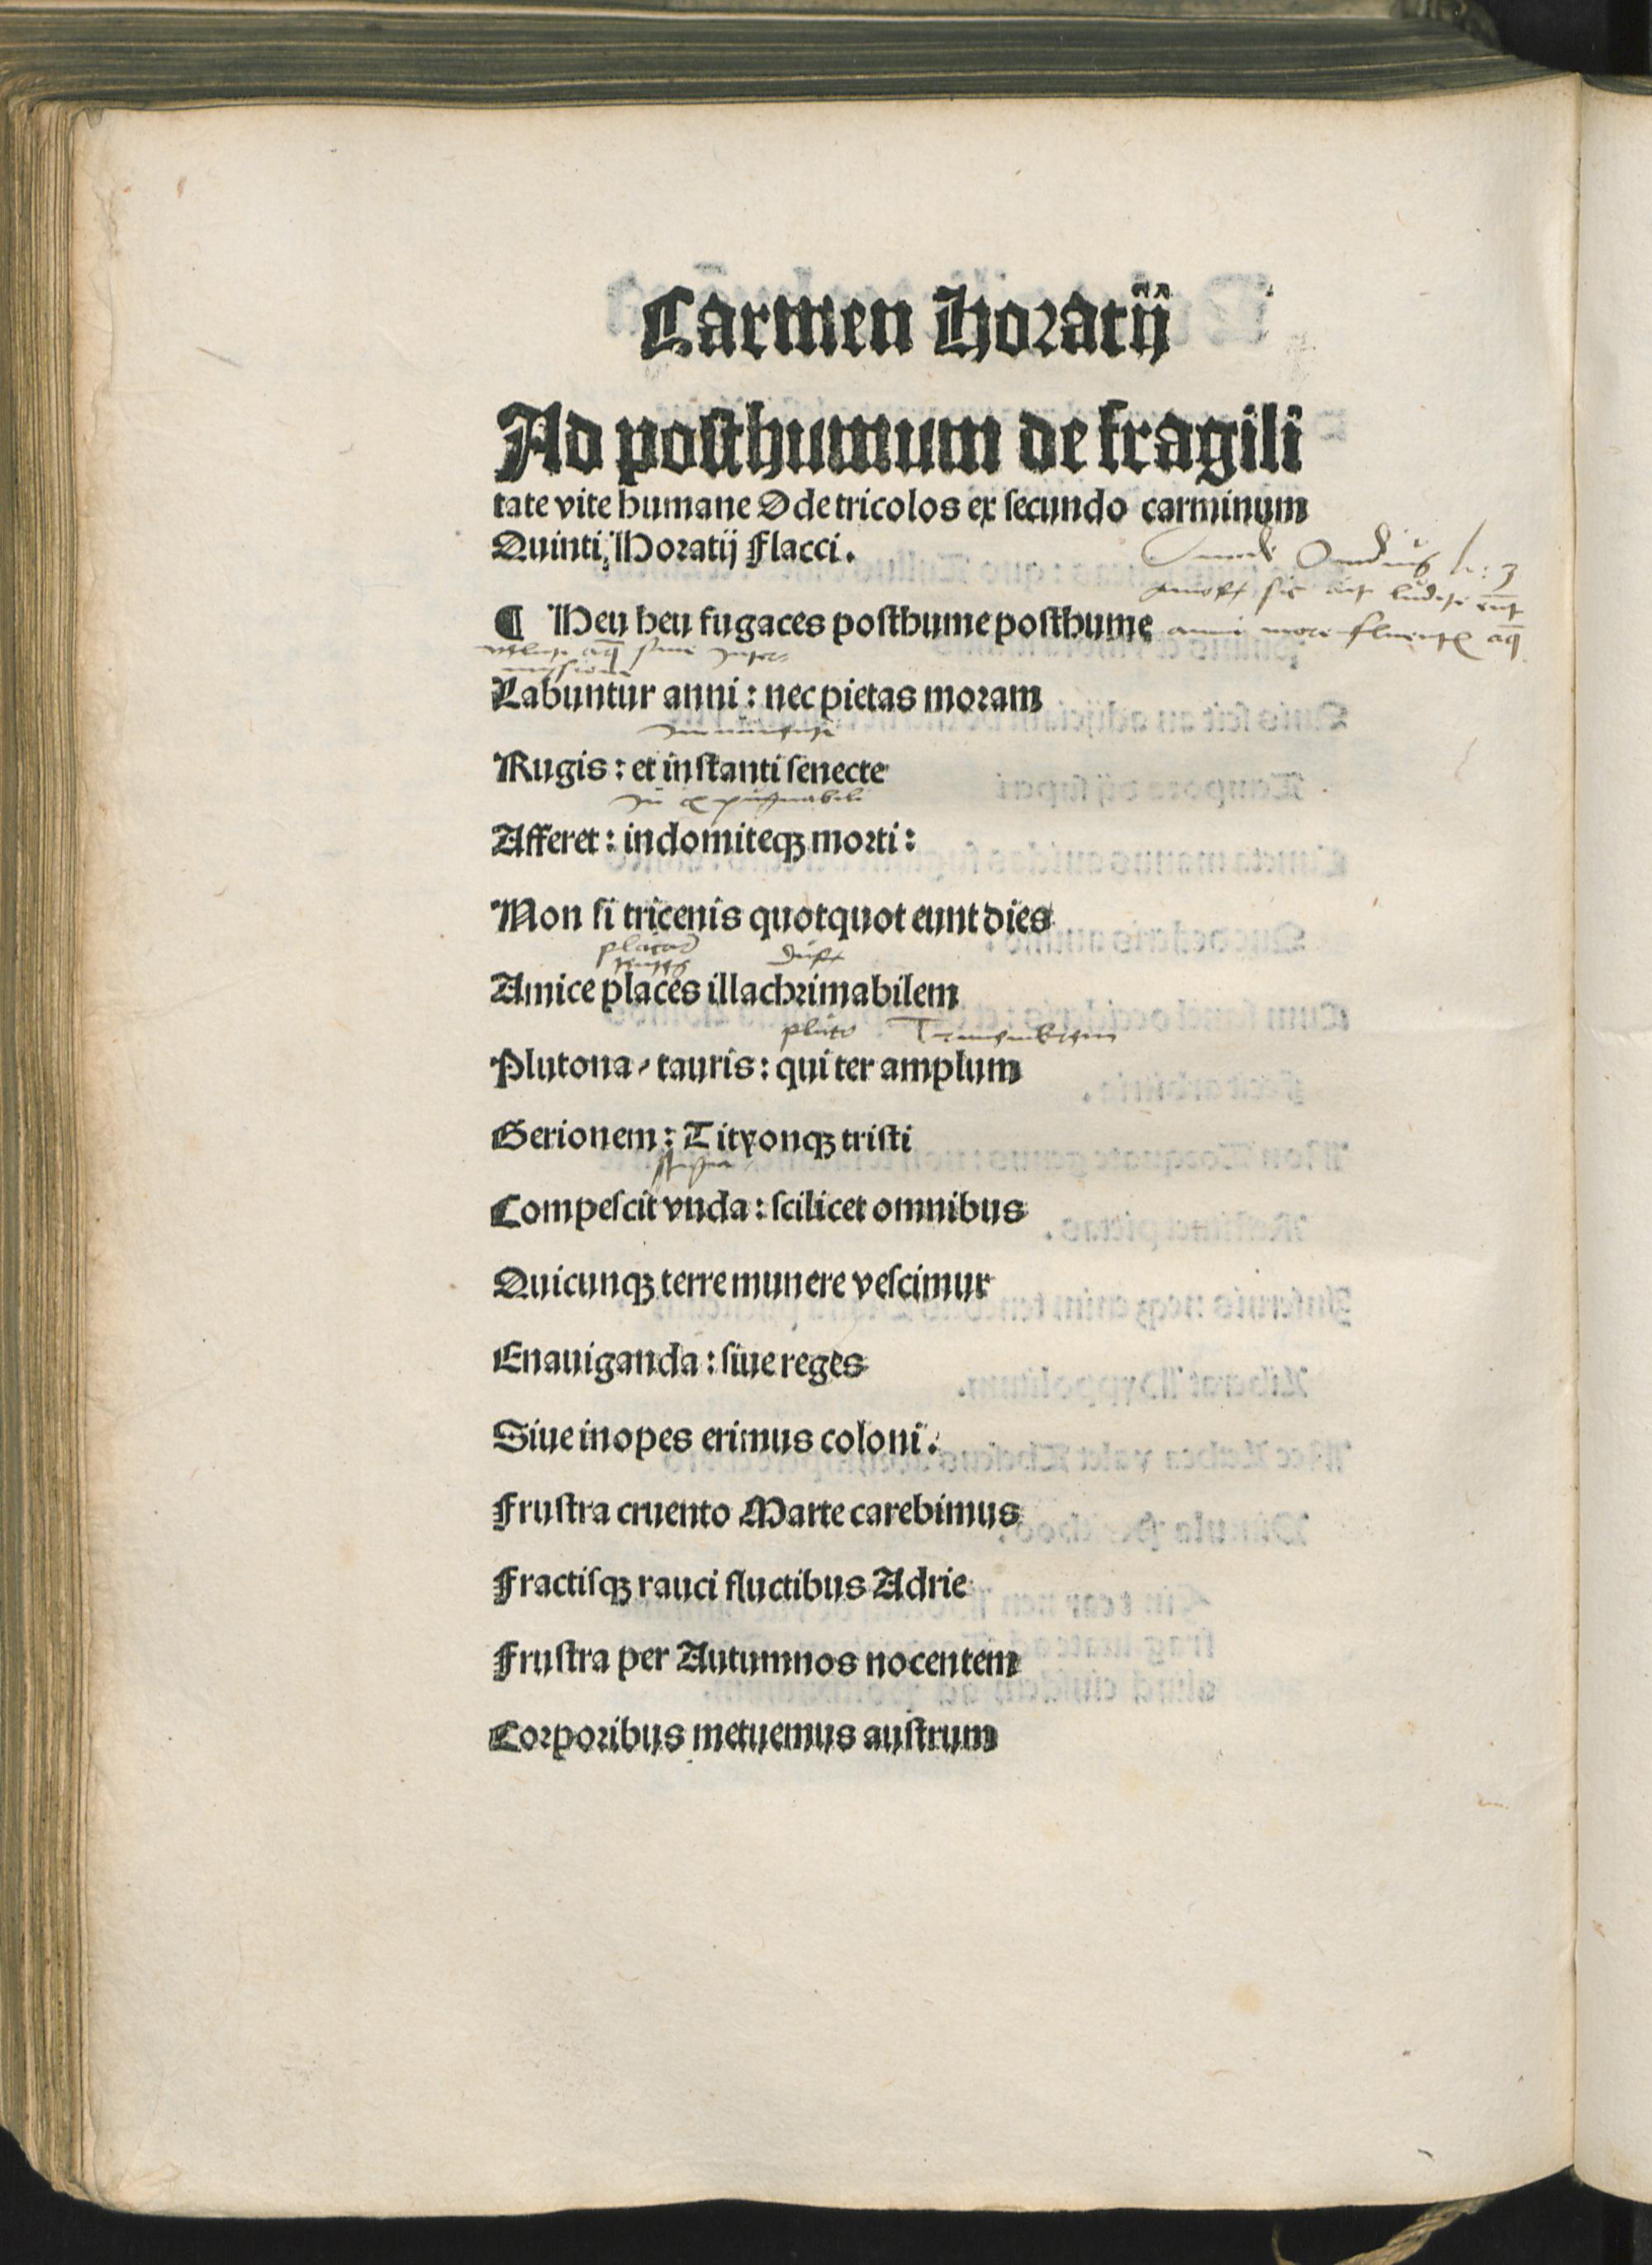 Carmen Horatij
Ad posthumum de fragili
tate vite humane Ode tricolos ex secundo carminum
Quinti Horatij Flacci.
Ouidius li: 3
sic
¶ Heu heu fugaces posthume posthume
anni more fluentis aq̄
Labuntur anni: nec pietas moram
Rugis: et instanti senecte
in expugnabili
Afferet: indomiteqꝫ morti:
Non si tricenis quotquot eunt dies
Amice places illachrimabilem
pluto
Plutona, tauris: qui ter amplum
Gerionem: Tityonqꝫ tristi
Compescit vnda: scilicet omnibus
Quicunqꝫ terre munere vescimur
Enauiganda: siue reges
Siue inopes erimus coloni.
Frustra cruento Marte carebimus
Fractisqꝫ rauci fluctibus Adrie
Frustra per Autumnos nocentem
Corporibus metuemus austrum